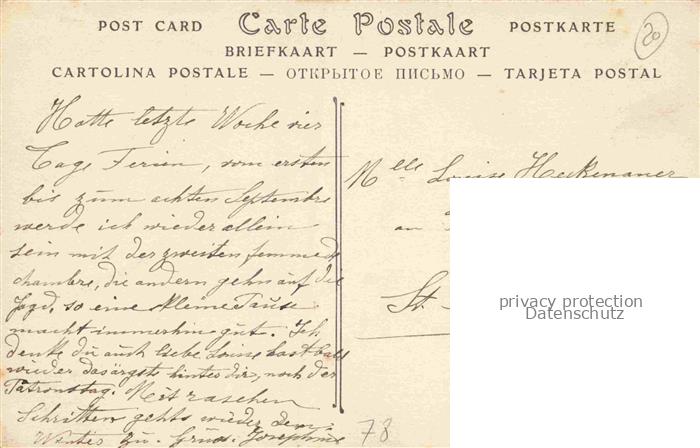 POST CARD Carte Postale POSTKARTE
BRIEFKAART — POSTKAART
CARTOLINA POSTALE — ОТКРЫТОЕ ПИСЬМО — TARJETA POSTAL
20
Hatte letzte Woche vier
Tage Ferien, vom ersten
bis zum achten Septembre
werde ich wieder allein
sein mit der zweiten femme de
chambre, die andern gehn auf die
Jagd, so eine kleine Pause
macht immerhin gut. Ich
denke du auch liebe Louise hast bald
wieder das ärgste hinter dir, noch der
Patronstag. Mit raschen
Schritten gehts wieder dem
Winter zu. Grüss. Josephine
Melle Louise Heckenauer
an
St.
privacy protection
Datenschutz
78